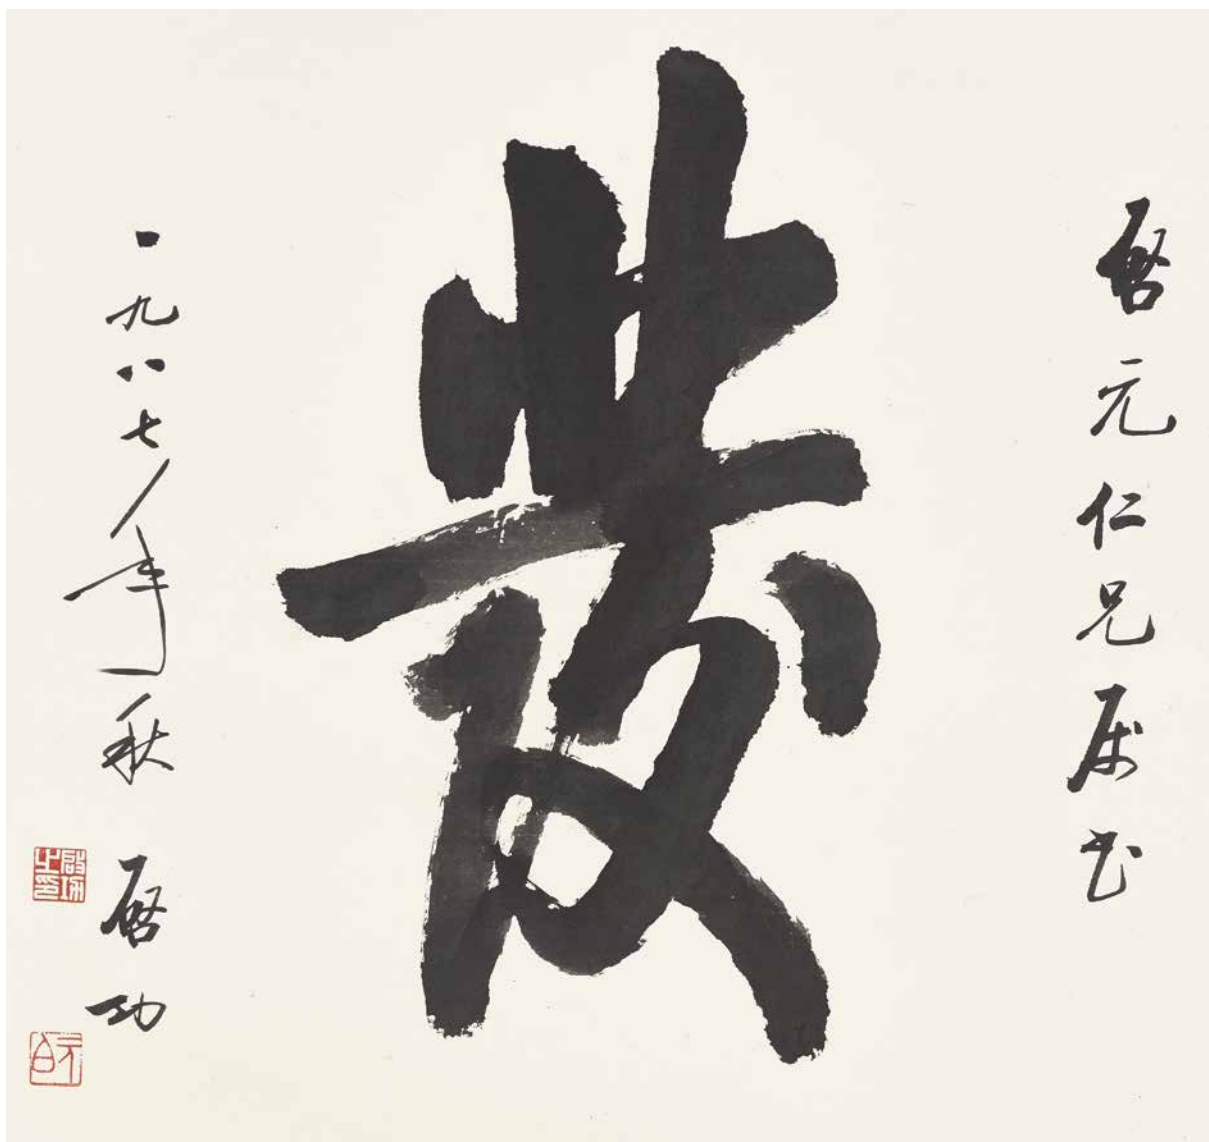 啓元仁兄属书
發
一九八七年秋 啓功
啟功之印
元白